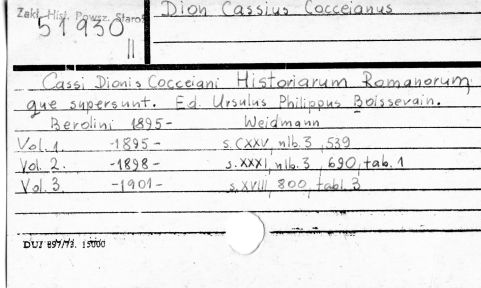 Zakł. Hist. Powsz. Staroż
Dion Cassius Cocceianus
51930
II
Cassi Dionis Cocceiani Historiarum Romanorum
que supersunt. Ed. Ursulus Philippus Boissevain.
Berolini 1895- Weidmann
Vol. 1 -1895- s. CXXV, nlb. 3, 539
Vol. 2. -1898- s. XXXI, nlb. 3, 690, tab. 1
Vol. 3. -1901- s. XVIII, 800, tabl. 3
DUJ 897/73. 15000